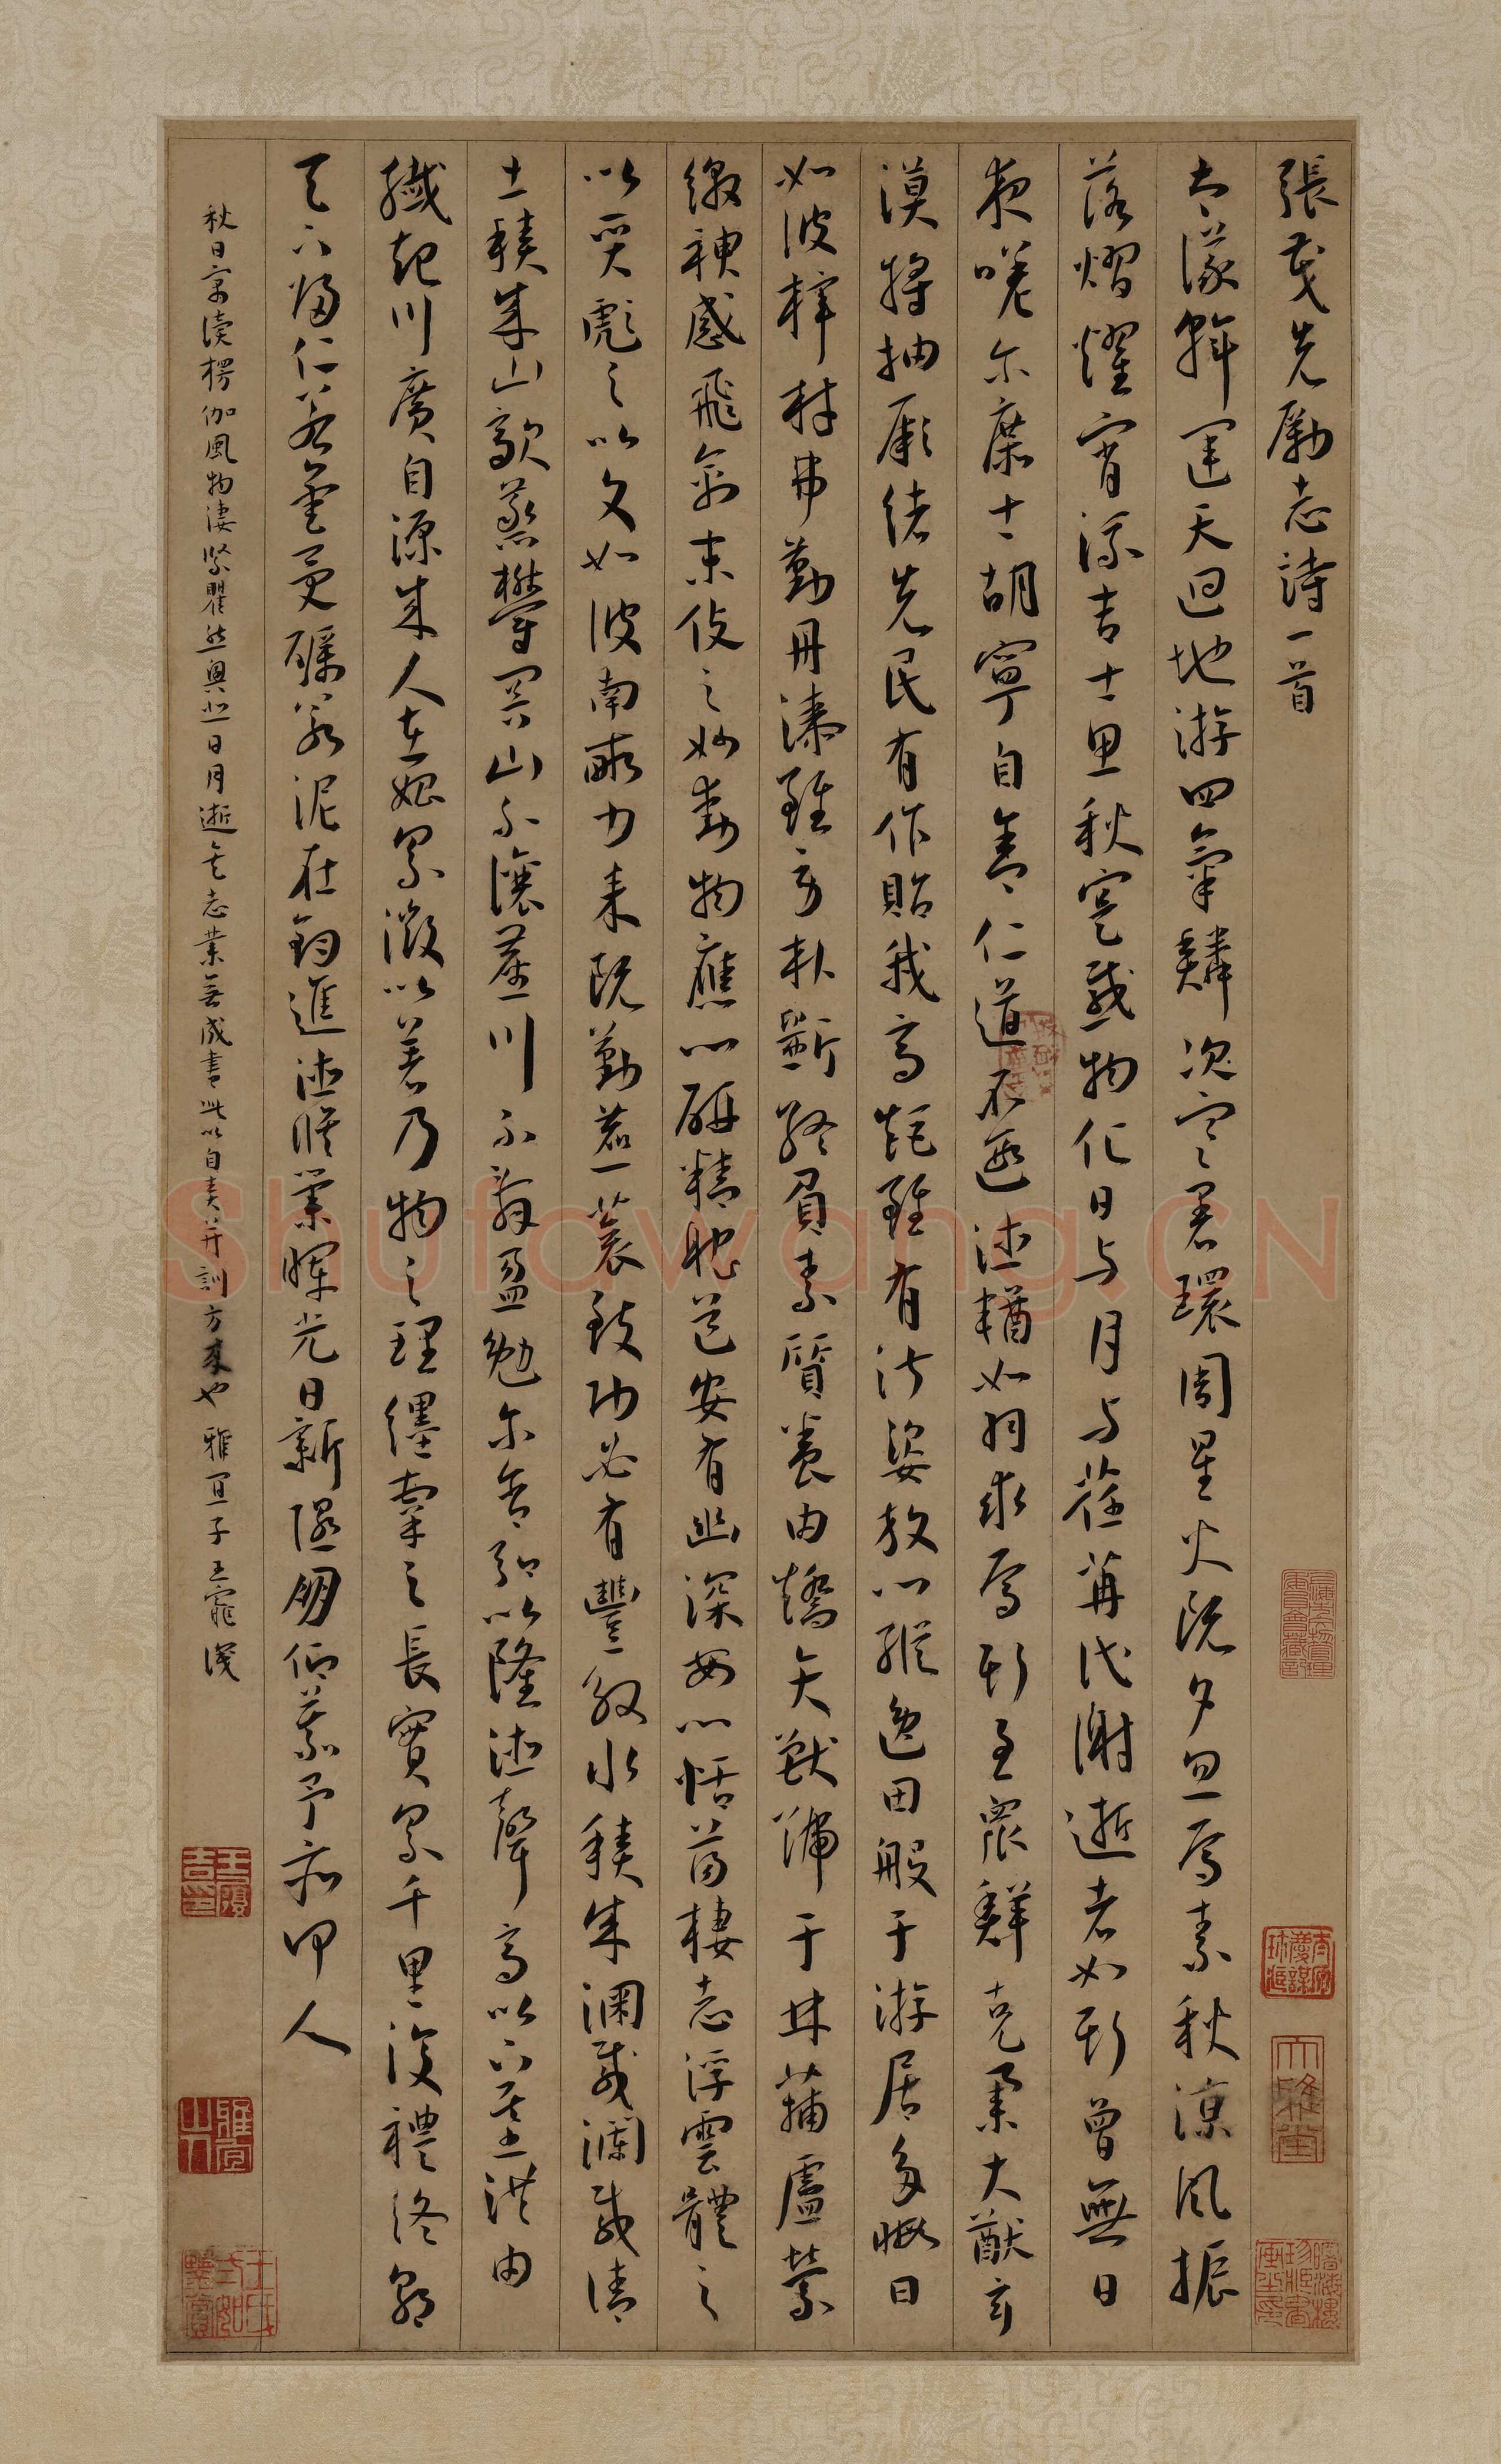 張茂先勵志詩一首
太儀斡運天迴地游四氣鱗次寒暑環周星火既夕忽焉素秋涼風振
落熠燿宵流吉士思秋寔感物化日与月与荏苒代謝逝者如斯曾無日
夜嗟尔庶士胡寧自舍仁道不遐德輶如羽求焉斯至眾鮮克舉大猷玄
漠將抽厥緒先民有作貽我高矩雖有淑姿放心縱逸田般于游居多暇日
如彼梓材弗勤丹漆雖勞朴斲終負素質養由矯矢獸號于林蒲盧縈
繳神感飛禽末伎之妙動物應心研精耽道安有幽深安心恬蕩棲志浮雲體之
以質彪之以文如彼南畝力耒既勤藨蓘致功必有豐殷水積成淵載瀾載清
土積成山歊蒸鬱冥山不讓塵川不辭盈勉尔含弘以隆德聲高以下基洪由
纖起川廣自源成人在始累微以著乃物之理纆牽之長實累千里復禮終朝
天下歸仁若金受礪若泥在鈞進德脩業暉光日新隰朋仰慕予亦何人
秋日寓讀楞伽風物淒緊瞿然興悲日月逝矣志業無成書此以自責并訓方來也 雅宜子王寵識
王履吉印
雅宜山人
大雅堂
shufawang.CN